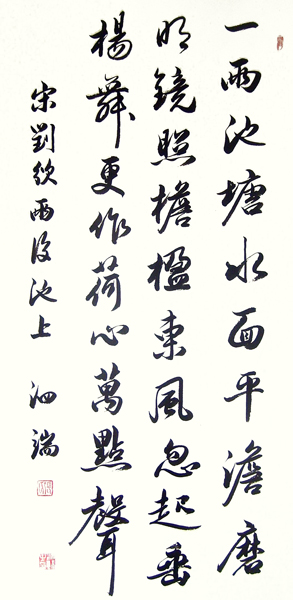 一雨池塘水面平澹磨
明鏡照檐楹東風忽起垂
楊舞更作荷心萬點聲
宋劉攽雨後池上 泗端